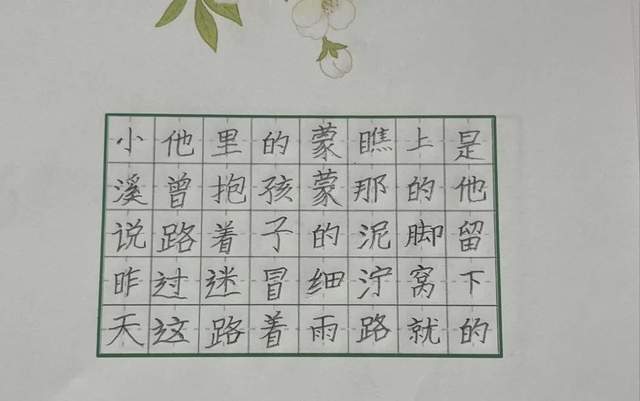 小溪说昨天
他曾路过这
里抱着迷路
的孩子冒着
蒙蒙的细雨
瞧那泥泞路
上的脚窝就
是他留下的